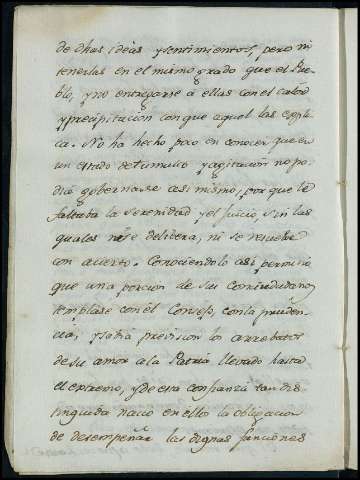 de dhas ideas y sentimientos, pero ni
tenerlas en el mismo grado que el Pue-
blo, y no entregarse á ellas con el calor
y precipitacion con que aquel las esplì-
ca. No ha hecho poco en conocer que en
un estado de tumulto y agitacion no po-
dia gobernarse asi mismo, por que le
faltaba la serenidad y el juicio, sin las
quales no se delibera, ni se resuelve
con acierto. Conociendolo asi, permitió
que una porcion de sus Conciudadanos
templase con el Consejo, con la pruden-
cia, y sabia prevision los arrebatos
de su amor a la Patria llevado hasta
el extremo, y de esta confianza tan dis-
tinguida nació en ellos la obligacion
de desempeñar las dignas funciones